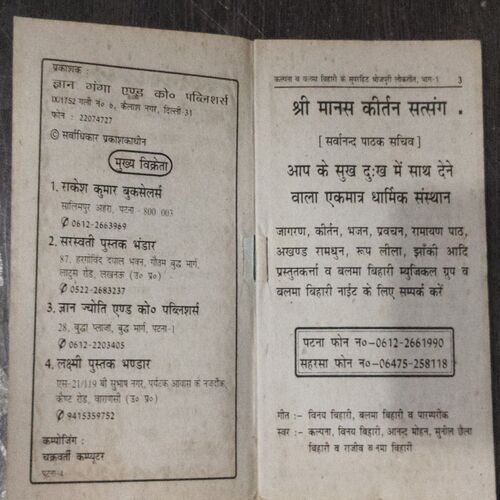 प्रकाशक :
ज्ञान गंगा एण्ड को० पब्लिशर्स
IX/1752 गली नं० 6, कैलाश नगर, दिल्ली-31
फोन : 22074727
© सर्वाधिकार प्रकाशकाधीन
मुख्य विक्रेता
1. राकेश कुमार बुकसेलर्स
सालिमपुर अहरा, पटना - 800 003
✆0612-2663969
2. सरस्वती पुस्तक भंडार
87, हरगोविंद दयाल भवन, गौतम बुद्ध मार्ग,
लाटूस रोड, लखनऊ (उ० प्र०)
✆0522-2683237
3. ज्ञान ज्योति एण्ड को० पब्लिशर्स
28, बुद्धा प्लाजा, बुद्ध मार्ग, पटना-1
✆0612-2203405
4. लक्ष्मी पुस्तक भण्डार
एस-21/119 बी सुभाष नगर, पर्यटक आवास के नजदीक,
कैण्ट रोड, वाराणसी (उ० प्र०)
✆9415359752
कम्पोजिंग :
चक्रवर्ती कम्प्यूटर
पटना-4
कल्पना व बलमा बिहारी के सुपरहिट भोजपुरी लोकगीत, भाग-1 3
श्री मानस कीर्तन सत्संग .
[ सर्वानन्द पाठक सचिव ]
आप के सुख दुःख में साथ देने
वाला एकमात्र धार्मिक संस्थान
जागरण, कीर्तन, भजन, प्रवचन, रामायण पाठ,
अखण्ड रामधुन, रूप लीला, झाँकी आदि
प्रस्तुतकर्त्ता व बलमा बिहारी म्युजिकल ग्रुप व
बलमा बिहारी नाईट के लिए सम्पर्क करें
पटना फोन न०-0612-2661990
सहरसा फोन न०-06475-258118
गीत :- विनय बिहारी, बलमा बिहारी व पारम्परीक
स्वर :- कल्पना, विनय बिहारी, आनन्द मोहन, सुनील छैला
बिहारी व राजीव बलमा बिहारी